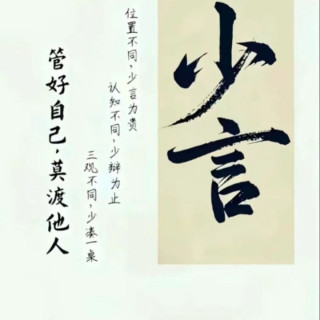 少言
位置不同，少言为贵
认知不同，少辩为止
三观不同，少凑一桌
管好自己，莫渡他人